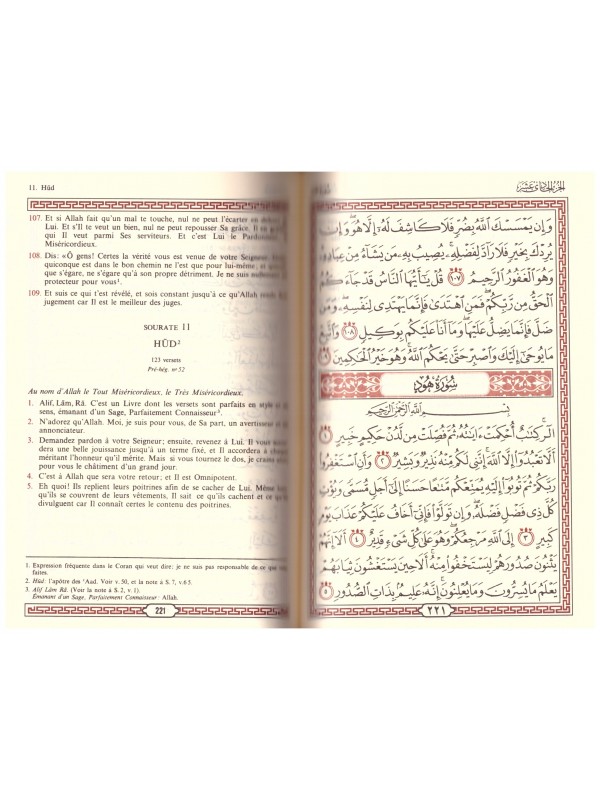 11. Hûd
107. Et si Allah fait qu'un mal te touche, nul ne peut l'écarter en dehors
Lui. Et s'Il te veut un bien, nul ne peut repousser Sa grâce. Il
qui Il veut parmi Ses serviteurs. Et c'est Lui le
Miséricordieux.
108. Dis: «Ô gens! Certes la vérité vous est venue de votre Seigneur.
quiconque est dans le bon chemin ne l'est que pour lui-même, et
que s'égare, ne s'égare qu'à son propre détriment. Je ne suis
protecteur pour vous¹.
109. Et suis ce qui t'est révélé, et sois constant jusqu'à ce qu'Allah
jugement car Il est le meilleur des juges.
SOURATE 11
HÛD²
123 versets
Pré-hég. nº 52
Au nom d'Allah le Tout Miséricordieux, le Très Miséricordieux.
1. Alif, Lâm, Râ. C'est un Livre dont les versets sont parfaits en style et
sens, émanant d'un Sage, Parfaitement Connaisseur³
2. N'adorez qu'Allah. Moi, je suis pour vous, de Sa part, un avertisseur et
annonciateur.
3. Demandez pardon à votre Seigneur; ensuite, revenez à Lui. Il vous
dera une belle jouissance jusqu'à un terme fixé, et Il accordera à
méritant l'honneur qu'il mérite. Mais si vous tournez le dos, je crains
pour vous le châtiment d'un grand jour.
4. C'est à Allah que sera votre retour; et Il est Omnipotent.
5. Eh quoi! Ils replient leurs poitrines afin de se cacher de Lui. Même
qu'ils se couvrent de leurs vêtements, Il sait ce qu'ils cachent et ce
divulguent car Il connaît certes le contenu des poitrines.
1. Expression fréquente dans le Coran qui veut dire: je ne suis pas responsable de ce que
faites.
2. Hûd: l'apôtre des 'Aad. Voir v.50, et la note à S.7, v.65.
3. Alif Lâm Râ. (Voir la note à S.2, v.1).
Émanant d'un Sage, Parfaitement Connaisseur: Allah.
221
الجزء الحادي عشر
وَإِن يَمْسَسْكَ ٱللَّهُ بِضُرٍّ فَلَا كَاشِفَ لَهُۥٓ إِلَّا هُوَ وَإِن
يُرِدْكَ بِخَيْرٍ فَلَا رَآدَّ لِفَضْلِهِۦ يُصِيبُ بِهِۦ مَن يَشَآءُ مِنْ عِبَادِهِۦ
وَهُوَ ٱلْغَفُورُ ٱلرَّحِيمُ ١٠٧ قُلْ يَٰٓأَيُّهَا ٱلنَّاسُ قَدْ جَآءَكُمُ
ٱلْحَقُّ مِن رَّبِّكُمْ فَمَنِ ٱهْتَدَىٰ فَإِنَّمَا يَهْتَدِى لِنَفْسِهِۦ وَمَن
ضَلَّ فَإِنَّمَا يَضِلُّ عَلَيْهَا وَمَآ أَنَا۠ عَلَيْكُم بِوَكِيلٍ ١٠٨ وَٱتَّبِعْ
مَا يُوحَىٰٓ إِلَيْكَ وَٱصْبِرْ حَتَّىٰ يَحْكُمَ ٱللَّهُ وَهُوَ خَيْرُ ٱلْحَٰكِمِينَ ١٠٩
سُورَةُ هُودٍ
بِسْمِ ٱللَّهِ ٱلرَّحْمَٰنِ ٱلرَّحِيمِ
الٓر كِتَٰبٌ أُحْكِمَتْ ءَايَٰتُهُۥ ثُمَّ فُصِّلَتْ مِن لَّدُنْ حَكِيمٍ خَبِيرٍ ١
أَلَّا تَعْبُدُوٓا۟ إِلَّا ٱللَّهَ إِنَّنِى لَكُم مِّنْهُ نَذِيرٌ وَبَشِيرٌ ٢ وَأَنِ ٱسْتَغْفِرُوا۟
رَبَّكُمْ ثُمَّ تُوبُوٓا۟ إِلَيْهِ يُمَتِّعْكُم مَّتَٰعًا حَسَنًا إِلَىٰٓ أَجَلٍ مُّسَمًّى وَيُؤْتِ
كُلَّ ذِى فَضْلٍ فَضْلَهُۥ وَإِن تَوَلَّوْا۟ فَإِنِّىٓ أَخَافُ عَلَيْكُمْ عَذَابَ يَوْمٍ
كَبِيرٍ ٣ إِلَى ٱللَّهِ مَرْجِعُكُمْ وَهُوَ عَلَىٰ كُلِّ شَىْءٍ قَدِيرٌ ٤ أَلَآ إِنَّهُمْ
يَثْنُونَ صُدُورَهُمْ لِيَسْتَخْفُوا۟ مِنْهُ أَلَا حِينَ يَسْتَغْشُونَ ثِيَابَهُمْ
يَعْلَمُ مَا يُسِرُّونَ وَمَا يُعْلِنُونَ إِنَّهُۥ عَلِيمٌۢ بِذَاتِ ٱلصُّدُورِ ٥
٢٢١